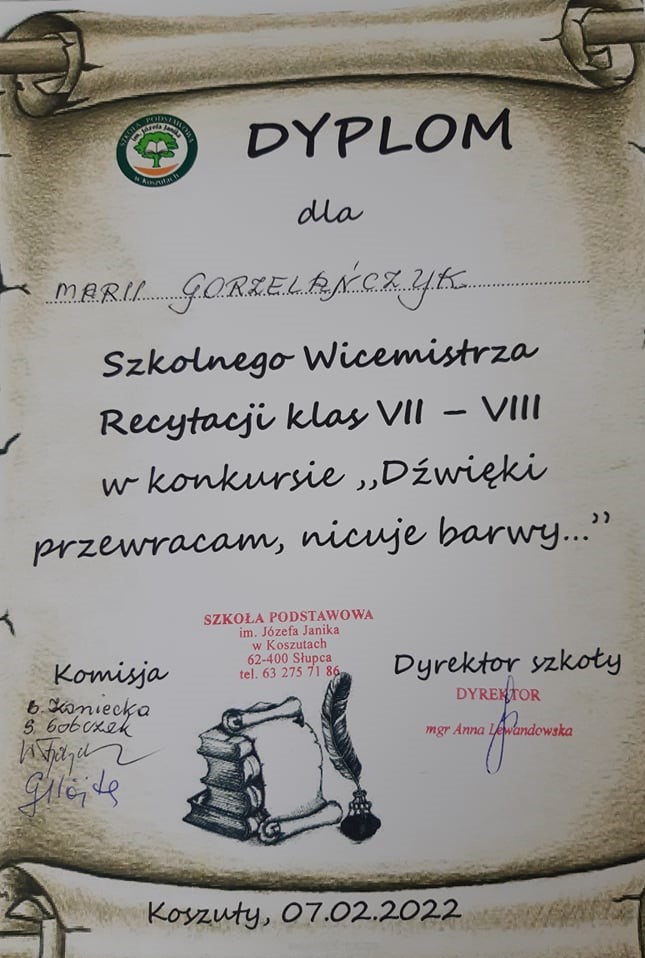 SZKOŁA PODSTAWOWA
im. Józefa Janika
w Koszutach
DYPLOM
dla
MARII GORZELAŃCZYK
Szkolnego Wicemistrza
Recytacji klas VII – VIII
w konkursie ,,Dźwięki
przewracam, nicuje barwy...”
SZKOŁA PODSTAWOWA
im. Józefa Janika
w Koszutach
62-400 Słupca
tel. 63 275 71 86
Komisja
B. Koniecka
S. Sobczak
Dyrektor szkoły
DYREKTOR
mgr Anna Lewandowska
Koszuty, 07.02.2022